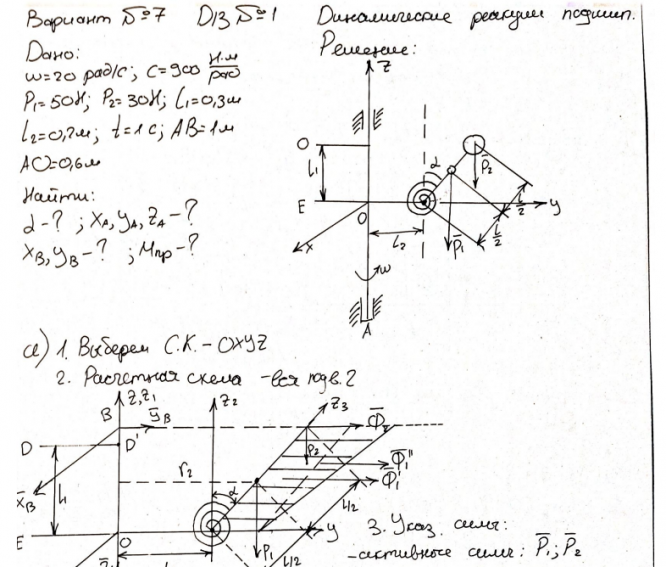 Вариант №7 ДЗ №1 Динамические реакции подшип.
Дано:
Решение:
ω=20 рад/с; c=900 Н·м/рад
P₁=50Н; P₂=30Н; l₁=0,3м
l₂=0,7м; t=1с; AB=1м
AO=0,6м
Найти:
α-? ; XA, YA, ZA-?
XB, YB-? ; Mпр-?
z
O
l₁
E
O
α
P₂
y
l/2
l/2
P₁
x
l₂
ω
A
а) 1. Выберем С.К. - OXYZ
2. Расчетная схема - вся подв.
z, z₁
z₂
z₃
B
ȳB
Φ̄₂
D
D'
P₂
Φ̄₁''
r₂
Φ̄₁'
x̄B
l₁
α
l/2
E
O
y
P₁
l/2
3. Указ. силы:
-активные силы: P̄₁; P̄₂